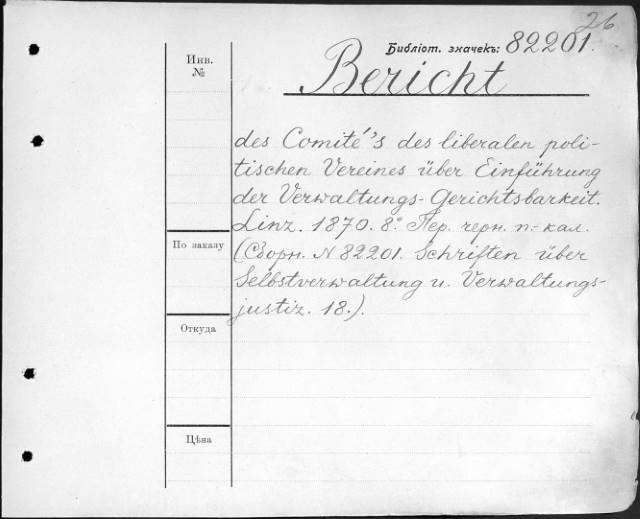 26
Библіот. значекъ: 82201.
Инв.
№
Bericht
des Comité's des liberalen poli-
tischen Vereines über Einführung
der Verwaltungs-Gerichtsbarkeit.
Linz. 1870. 8° Пер. черн. п.-кал.
По заказу
(Сборн. N 82201. Schriften über
Selbstverwaltung u. Verwaltungs-
justiz. 18.).
Откуда
Цѣна